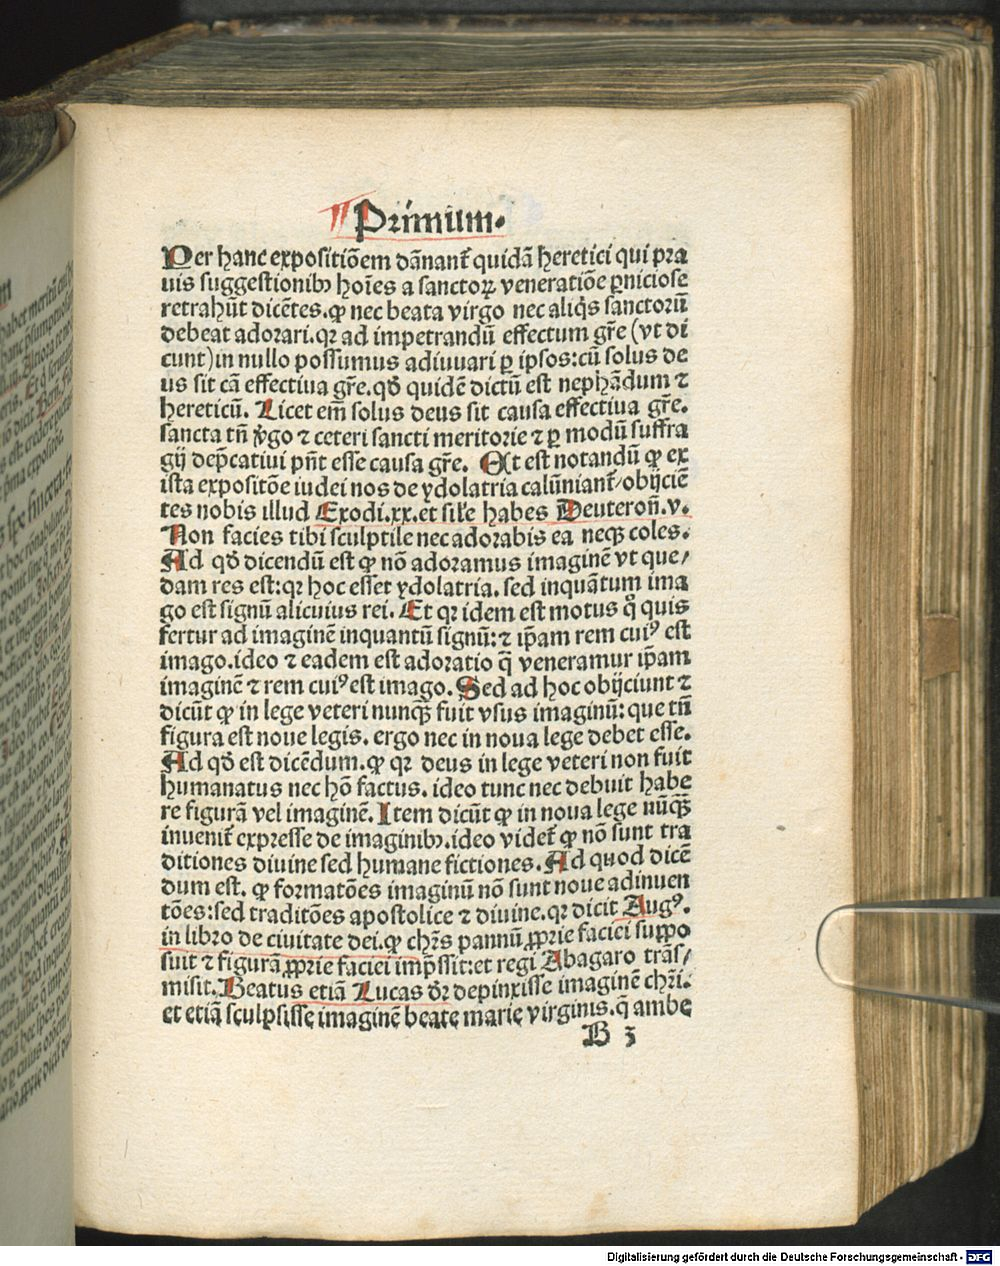 Primum.
Per hanc expositiõem dãnant᷑ quidã heretici qui pra
uis suggestionibꝫ hoĩes a sanctoꝝ veneratiõe ꝑniciose
retrahũt dicẽtes. ꝙ nec beata virgo nec aliq̃s sanctorũ
debeat adorari. qꝛ ad impetrandũ effectum gr̃e (vt di
cunt) in nullo possumus adiuuari ꝑ ipsos: cũ solus de
us sit cã effectiua gr̃e. qð quidẽ dictũ est nephãdum ⁊
hereticũ. Licet em̃ solus deus sit causa effectiua gr̃e.
sancta tñ v̓go ⁊ ceteri sancti meritorie ⁊ ꝑ modũ suffra
gij dep̃catiui pñt esse causa gr̃e. At est notandũ ꝙ ex
ista expositõe iudei nos de ydolatria calũniant᷑/ obijciẽ
tes nobis illud Exodi.xx. et sil̓e habes Deuteroñ.v.
Non facies tibi sculptile nec adorabis ea neqꝫ coles.
Ad qð dicendũ est ꝙ nõ adoramus imaginẽ vt que/
dam res est: qꝛ hoc esset ydolatria. sed inquãtum ima
go est signũ alicuius rei. Et qꝛ idem est motus q̊ quis
fertur ad imaginẽ inquantũ signũ: ⁊ ip̃am rem cuiꝰ est
imago. ideo ⁊ eadem est adoratio q̃ veneramur ip̃am
imaginẽ ⁊ rem cuiꝰ est imago. Sed ad hoc obijciunt ⁊
dicũt ꝙ in lege veteri nunqꝫ̃ fuit vsus imaginũ: que tñ
figura est noue legis. ergo nec in noua lege debet esse.
Ad qð est dicẽdum. ꝙ qꝛ deus in lege veteri non fuit
humanatus nec hõ factus. ideo tunc nec debuit habe
re figurã vel imaginẽ. Item dicũt ꝙ in noua lege nũqꝫ̃
inuenit᷑ expresse de imaginibꝫ. ideo videt᷑ ꝙ nõ sunt tra
ditiones diuine sed humane fictiones. Ad quod dicẽ
dum est. ꝙ formatões imaginũ nõ sunt noue adinuen
tões: sed traditões apostolice ⁊ diuine. qꝛ dicit Augꝰ.
in libro de ciuitate dei. ꝙ chr̃s pannũ ꝓprie faciei suppo
suit ⁊ figurã ꝓprie faciei imp̃ssit: et regi Abagaro trãs/
misit. Beatus etiã Lucas dr̃ depinxisse imaginẽ chr̃i.
et etiã sculpsisse imaginẽ beate marie virginis. q̃ ambe
B 3
Digitalisierung gefördert durch die Deutsche Forschungsgemeinschaft - DFG